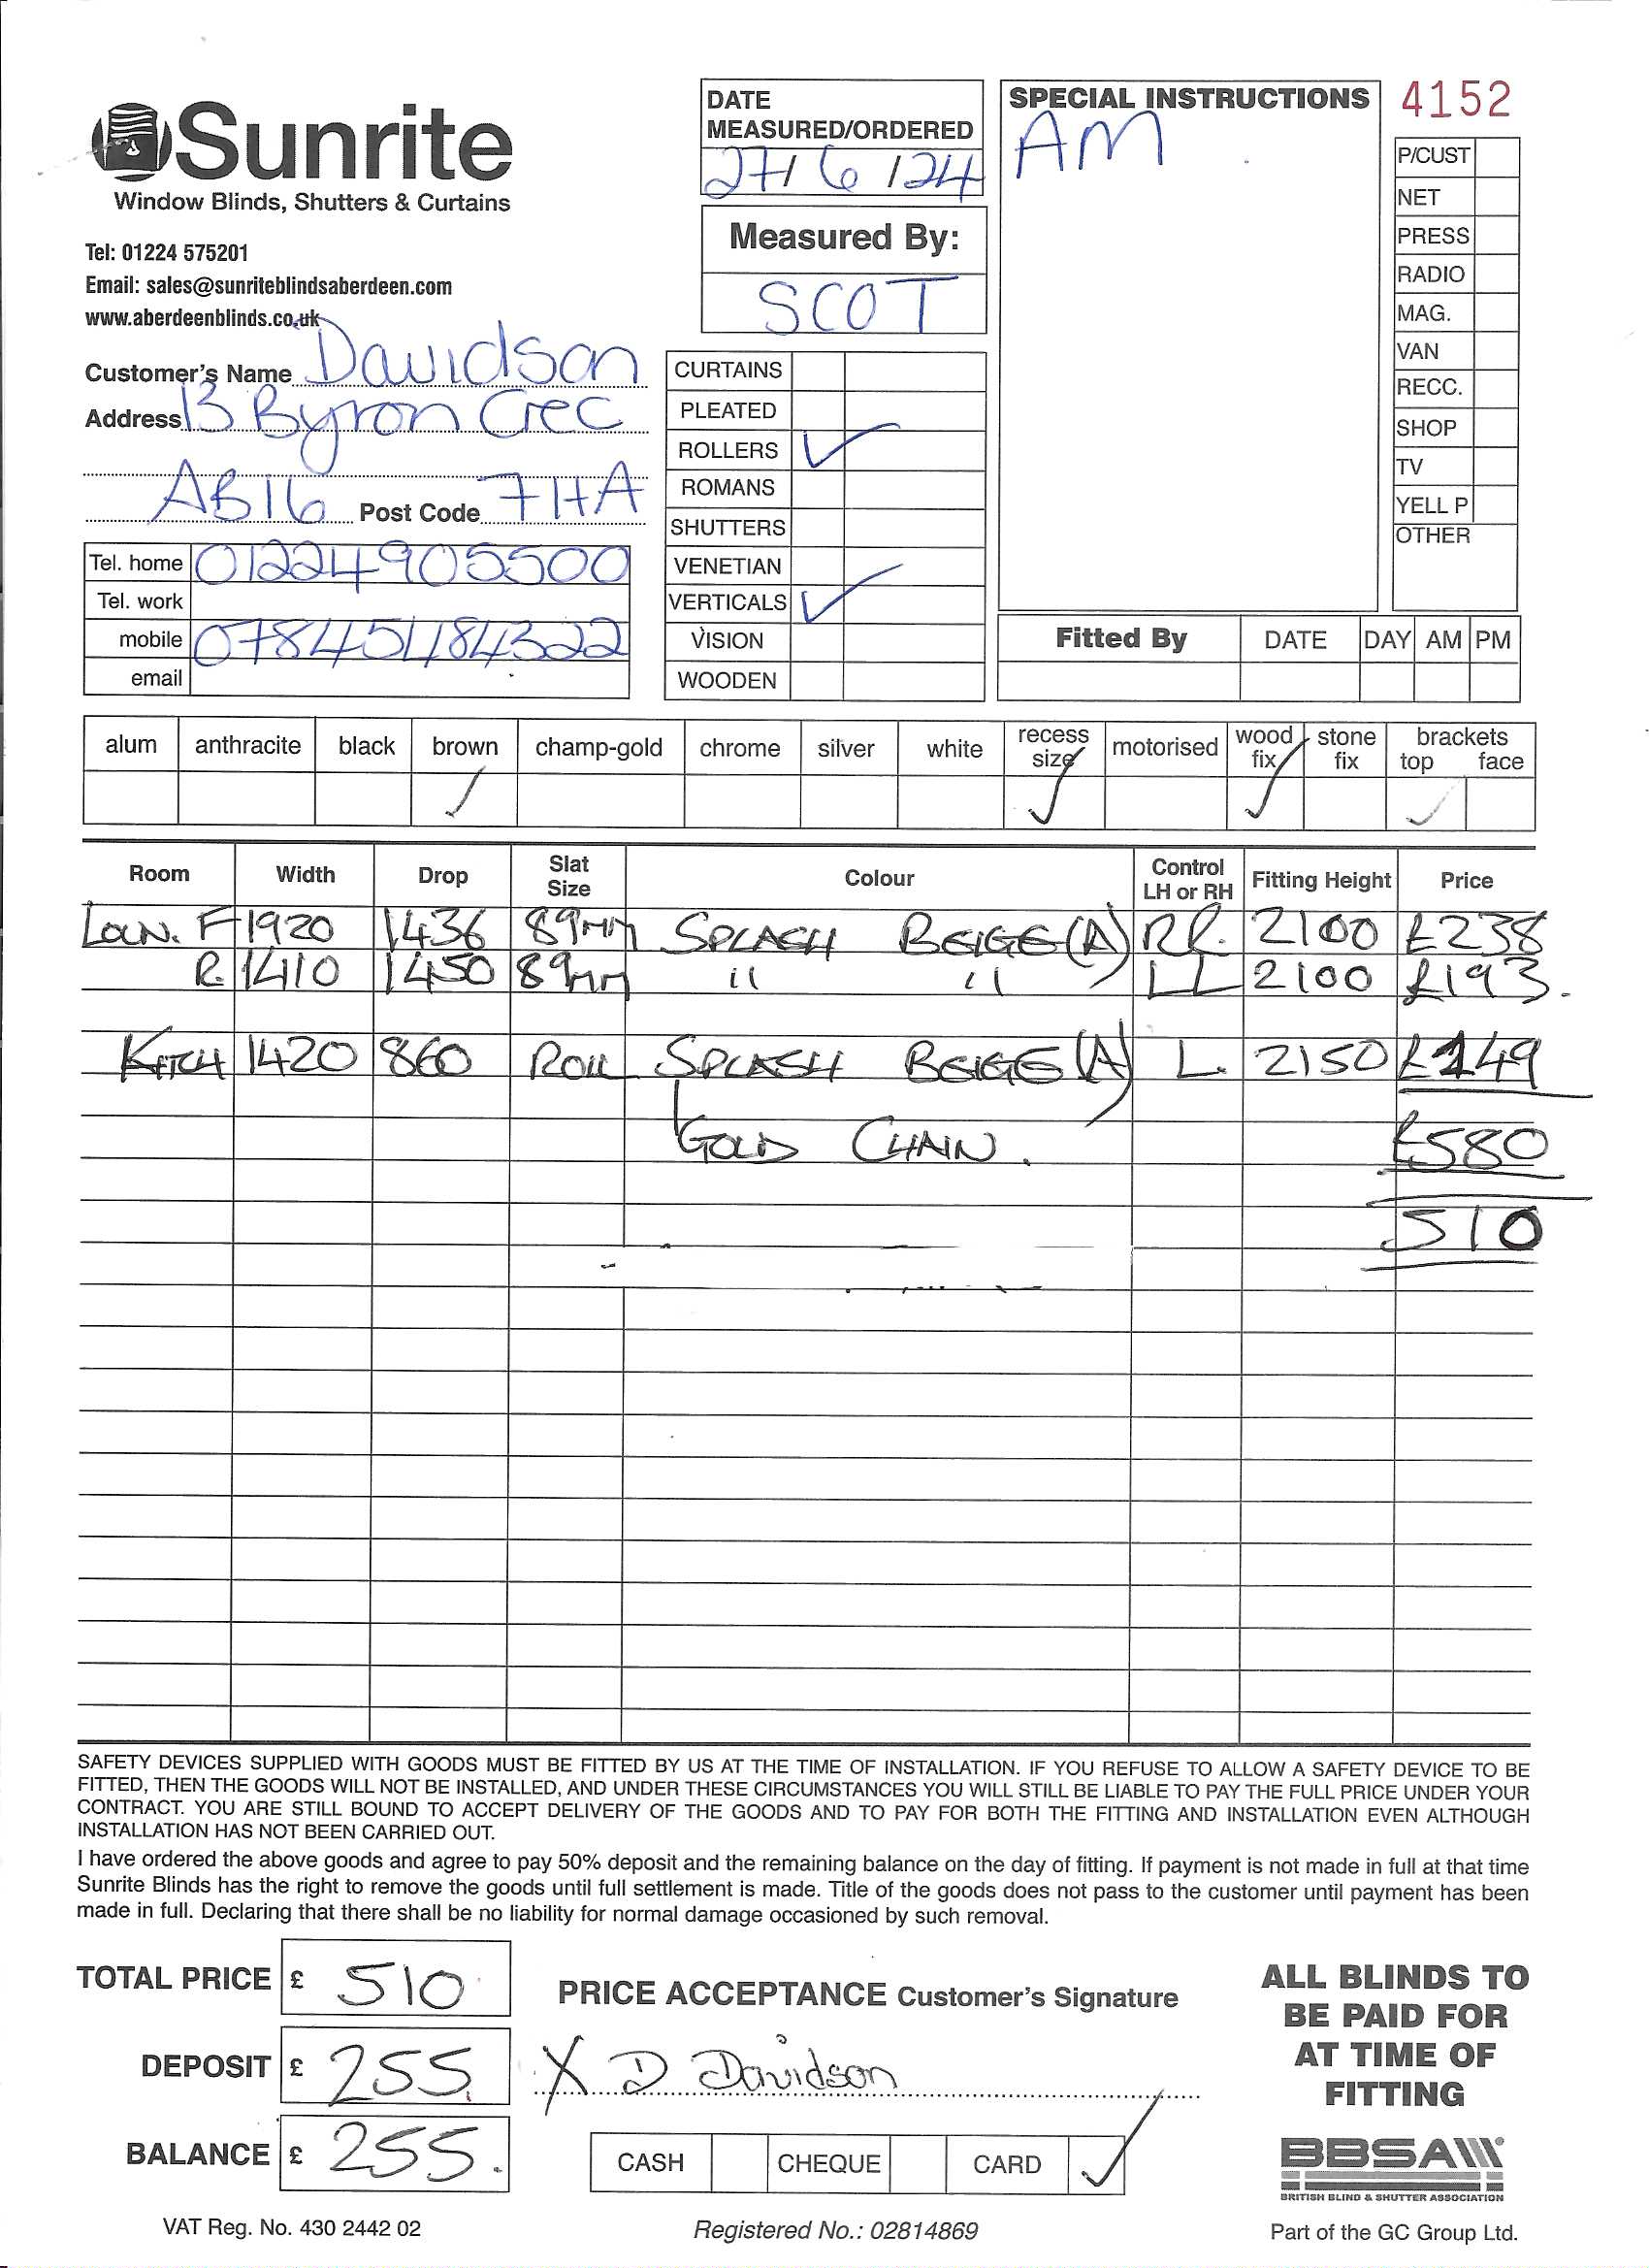 Sunrite
Window Blinds, Shutters & Curtains
Tel: 01224 575201
Email: sales@sunriteblindsaberdeen.com
www.aberdeenblinds.co.uk
Customer's Name Davidson
Address 13 Byron Crec
AB16 Post Code 7HA
Tel. home 01224905500
Tel. work
mobile 07845484322
email
DATE
MEASURED/ORDERED
27/6/24
Measured By:
SCOT
CURTAINS
PLEATED
ROLLERS ✓
ROMANS
SHUTTERS
VENETIAN
VERTICALS ✓
VISION
WOODEN
SPECIAL INSTRUCTIONS
AM
4152
P/CUST
NET
PRESS
RADIO
MAG.
VAN
RECC.
SHOP
TV
YELL P
OTHER
Fitted By DATE DAY AM PM
alum anthracite black brown champ-gold chrome silver white recess size motorised wood fix stone fix brackets top face
✓ ✓ ✓ ✓
Room Width Drop Slat Size Colour Control LH or RH Fitting Height Price
LOUN. F 1920 1436 89mm SPLASH BEIGE (A) RR. 2100 £238
R. 1410 1450 89mm " " LL 2100 £193.
KITCH 1420 860 ROLL SPLASH BEIGE (A) L. 2150 £149
GOLD CHAIN. £580
510
SAFETY DEVICES SUPPLIED WITH GOODS MUST BE FITTED BY US AT THE TIME OF INSTALLATION. IF YOU REFUSE TO ALLOW A SAFETY DEVICE TO BE
FITTED, THEN THE GOODS WILL NOT BE INSTALLED, AND UNDER THESE CIRCUMSTANCES YOU WILL STILL BE LIABLE TO PAY THE FULL PRICE UNDER YOUR
CONTRACT. YOU ARE STILL BOUND TO ACCEPT DELIVERY OF THE GOODS AND TO PAY FOR BOTH THE FITTING AND INSTALLATION EVEN ALTHOUGH
INSTALLATION HAS NOT BEEN CARRIED OUT.
I have ordered the above goods and agree to pay 50% deposit and the remaining balance on the day of fitting. If payment is not made in full at that time
Sunrite Blinds has the right to remove the goods until full settlement is made. Title of the goods does not pass to the customer until payment has been
made in full. Declaring that there shall be no liability for normal damage occasioned by such removal.
TOTAL PRICE £ 510
DEPOSIT £ 255.
BALANCE £ 255.
PRICE ACCEPTANCE Customer's Signature
X D Davidson
CASH CHEQUE CARD ✓
ALL BLINDS TO
BE PAID FOR
AT TIME OF
FITTING
BBSA
BRITISH BLIND & SHUTTER ASSOCIATION
VAT Reg. No. 430 2442 02
Registered No.: 02814869
Part of the GC Group Ltd.